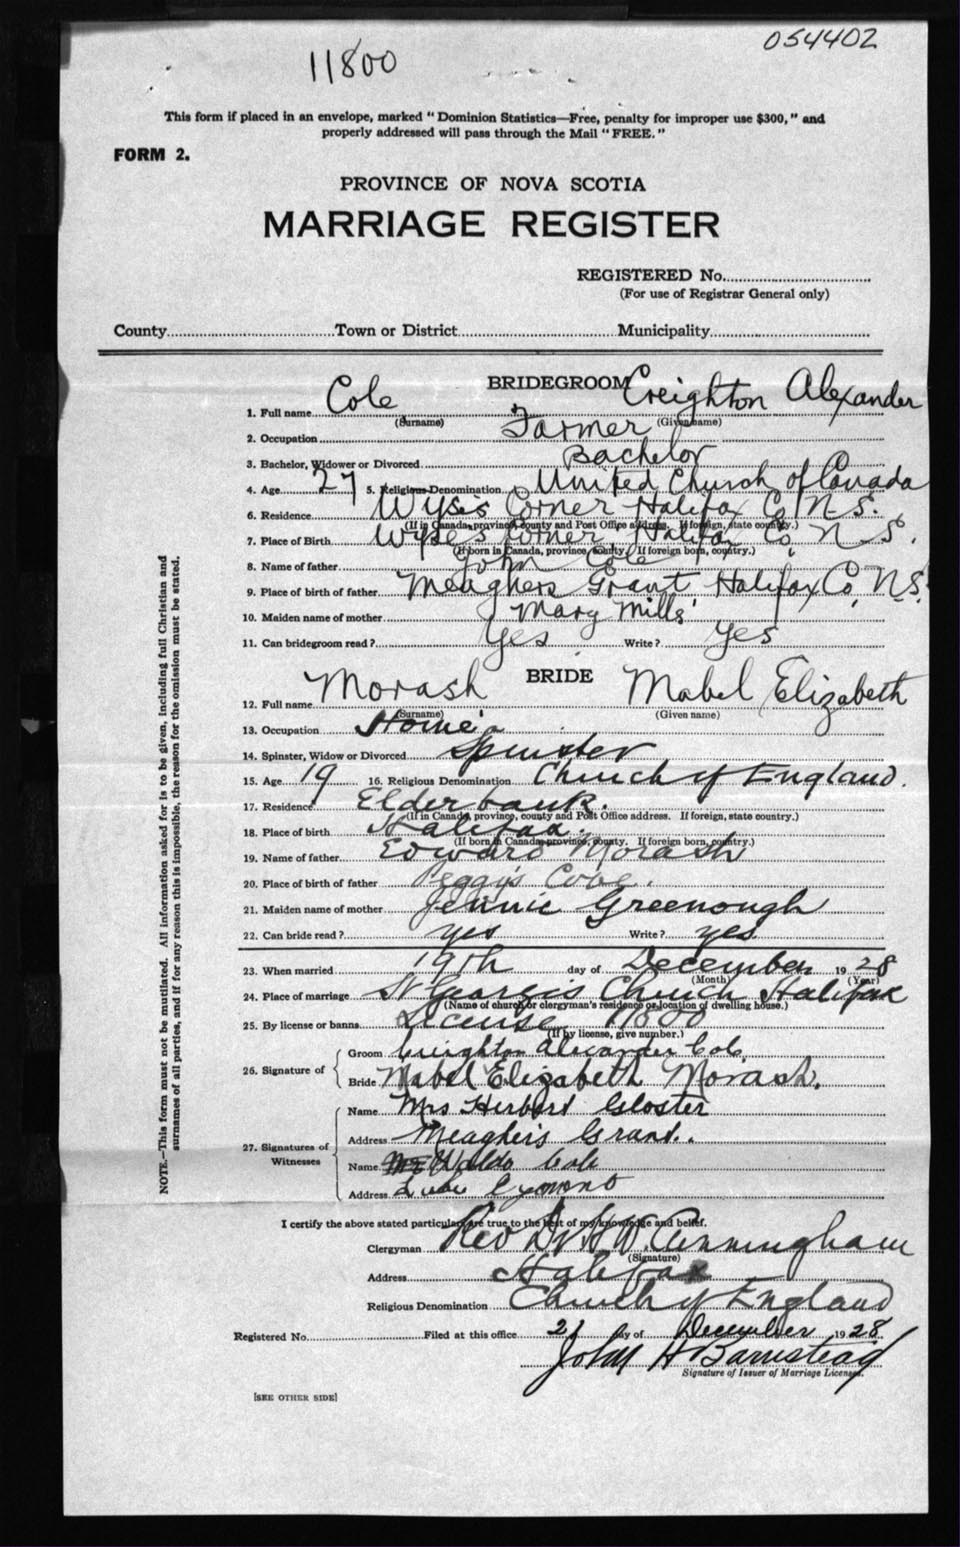 054402
11800
This form if placed in an envelope, marked "Dominion Statistics—Free, penalty for improper use $300," and
properly addressed will pass through the Mail "FREE."
FORM 2.
PROVINCE OF NOVA SCOTIA
MARRIAGE REGISTER
REGISTERED No.
(For use of Registrar General only)
County Town or District Municipality
BRIDEGROOM
1. Full name Cole Creighton Alexander
(Surname) (Given name)
2. Occupation Farmer
3. Bachelor, Widower or Divorced Bachelor
4. Age 27 5. Religious Denomination United Church of Canada
6. Residence Wyse's Corner Halifax Co N.S.
(If in Canada, province, county and Post Office address. If foreign, state country.)
7. Place of Birth Wyse's Corner Halifax Co, N S.
(If born in Canada, province, county. If foreign born, country.)
8. Name of father John Cole
9. Place of birth of father Meaghers Grant Halifax Co, N.S.
10. Maiden name of mother Mary Mills
11. Can bridegroom read? Yes Write? Yes
BRIDE
12. Full name Morash Mabel Elizabeth
(Surname) (Given name)
13. Occupation Home
14. Spinster, Widow or Divorced Spinster
15. Age 19 16. Religious Denomination Church of England.
17. Residence Elderbank.
(If in Canada, province, county and Post Office address. If foreign, state country.)
18. Place of birth Halifax.
(If born in Canada, province, county. If foreign born, country.)
19. Name of father Edward Morash
20. Place of birth of father Peggy's Cove.
21. Maiden name of mother Jennie Greenough
22. Can bride read? yes Write? yes
23. When married 19th day of December 1928
(Month) (Year)
24. Place of marriage St George's Church Halifax
(Name of church or clergyman's residence or location of dwelling house.)
25. By license or banns License 11800
(If by license, give number.)
26. Signature of
Groom Creighton Alexander Cole
Bride Mabel Elizabeth Morash.
27. Signatures of Witnesses
Name Mrs Herbert Gloster
Address Meagher's Grant.
Name Waldo Cole
Address
I certify the above stated particulars are true to the best of my knowledge and belief.
Clergyman Rev Dr H W. Cunningham
(Signature)
Address Halifax
Religious Denomination Church of England
Registered No. Filed at this office 21 day of December 1928
John H Barnstead
Signature of Issuer of Marriage Licenses.
[SEE OTHER SIDE]
NOTE.—This form must not be mutilated. All information asked for is to be given, including full Christian and
surnames of all parties, and if for any reason this is impossible, the reason for the omission must be stated.